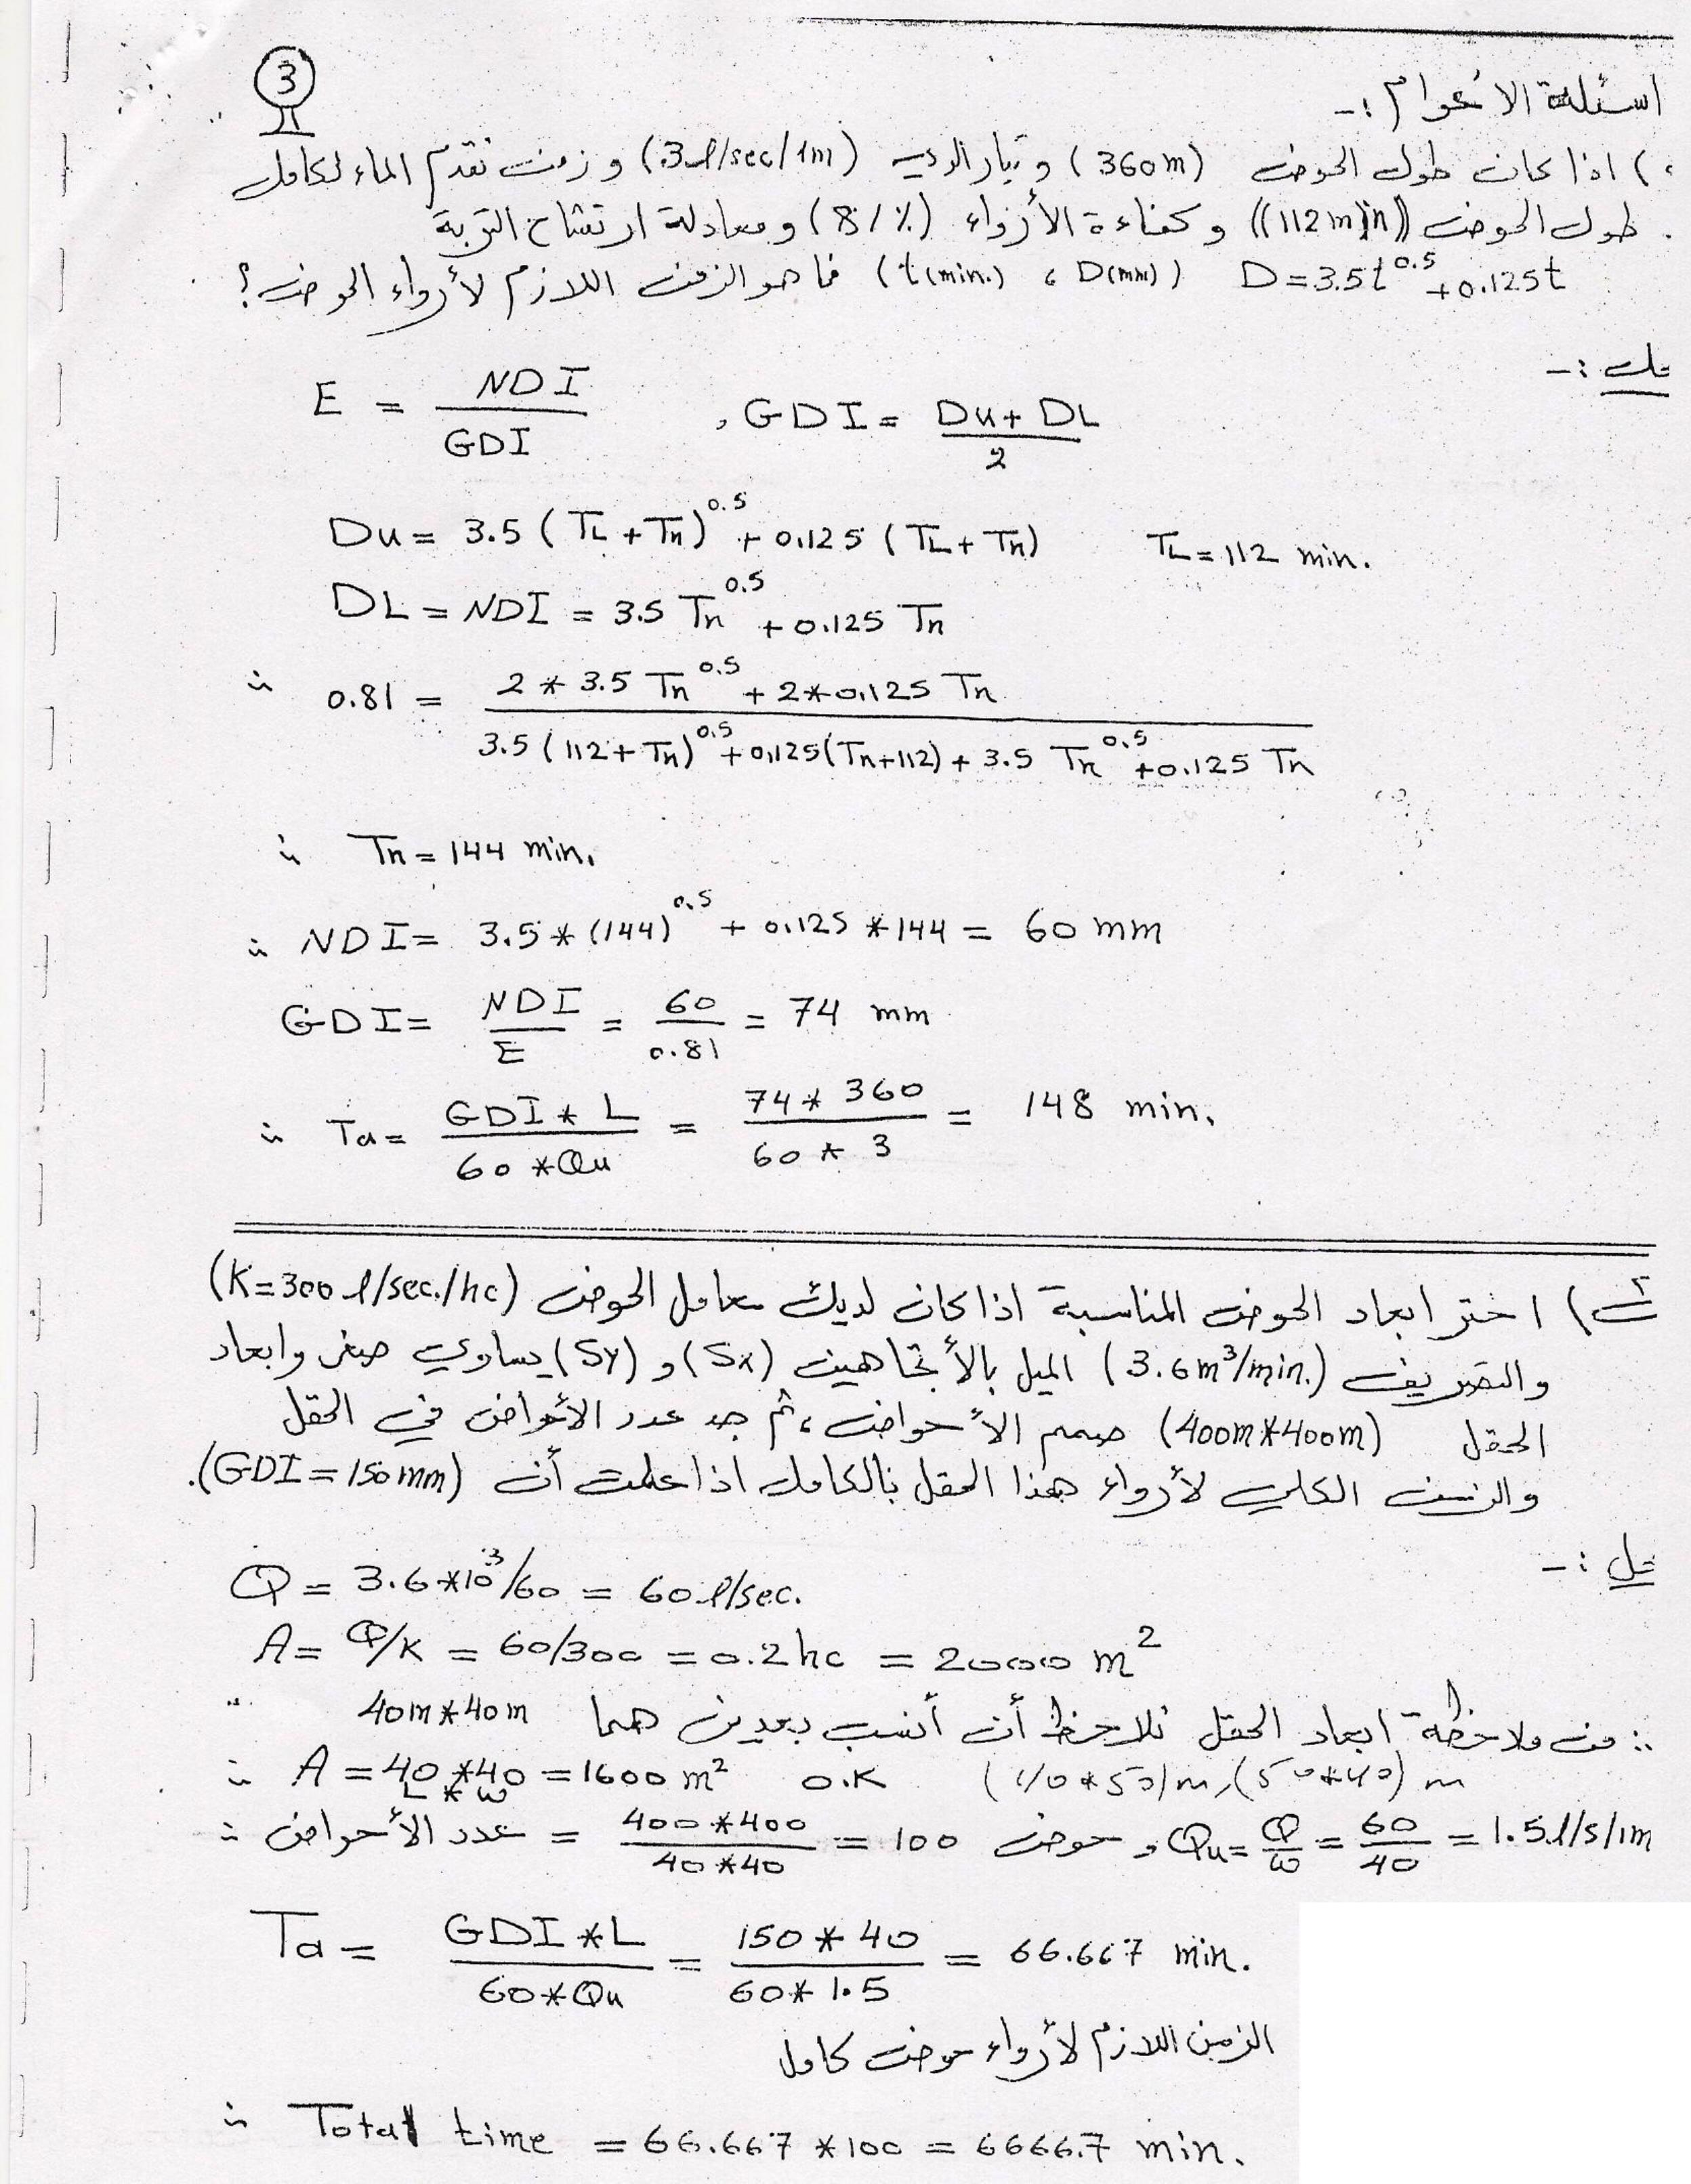 3
اسئلة الاعوام :-
) اذا كان طول الحوض (360m) و تيار الري (3 l/sec/1m) و زمن تقدم الماء لكامل
طول الحوض ((112 min)) و كفاءة الأرواء (81%) و معادلة ارتشاح التربة
D=3.5t^0.5+0.125t (t(min.) ، D(mm)) فما هو الزمن اللازم لأرواء الحوض؟
حل :-
E = NDI/GDI , GDI = (Du+DL)/2
Du = 3.5 (TL+Tn)^0.5 + 0.125 (TL+Tn) TL=112 min.
DL = NDI = 3.5 Tn^0.5 + 0.125 Tn
∴ 0.81 = (2*3.5 Tn^0.5 + 2*0.125 Tn) / (3.5(112+Tn)^0.5 + 0.125(Tn+112) + 3.5 Tn^0.5 + 0.125 Tn)
∴ Tn = 144 min.
∴ NDI = 3.5*(144)^0.5 + 0.125*144 = 60 mm
GDI = NDI/E = 60/0.81 = 74 mm
∴ Ta = GDI*L/60*Qu = 74*360/60*3 = 148 min.
) اختر ابعاد الحوض المناسبة اذا كان لديك معامل الحوض (K=300 l/sec./hc)
والتصريف (3.6 m³/min.) الميل بالأتجاهين (Sx) و (Sy) يساوي صفر وابعاد
الحقل (400m*400m) صمم الأحواض ، ثم جد عدد الأحواض في الحقل
والزمن الكلي لأرواء هذا الحقل بالكامل اذا علمت أن (GDI=150mm).
حل :-
Q = 3.6*10³/60 = 60 l/sec.
A = Q/K = 60/300 = 0.2 hc = 2000 m²
∴ من ملاحظة ابعاد الحقل نلاحظ أن أنسب بعدين هما 40m*40m
∴ A = 40*40 = 1600 m² O.K (40*50)m,(50*40) m
L*w
∴ عدد الأحواض = 400*400/40*40 = 100 حوض , Qu = Q/w = 60/40 = 1.5 l/s/1m
Ta = GDI*L/60*Qu = 150*40/60*1.5 = 66.667 min.
الزمن اللازم لأرواء حوض كامل
∴ Total time = 66.667*100 = 6666.7 min.